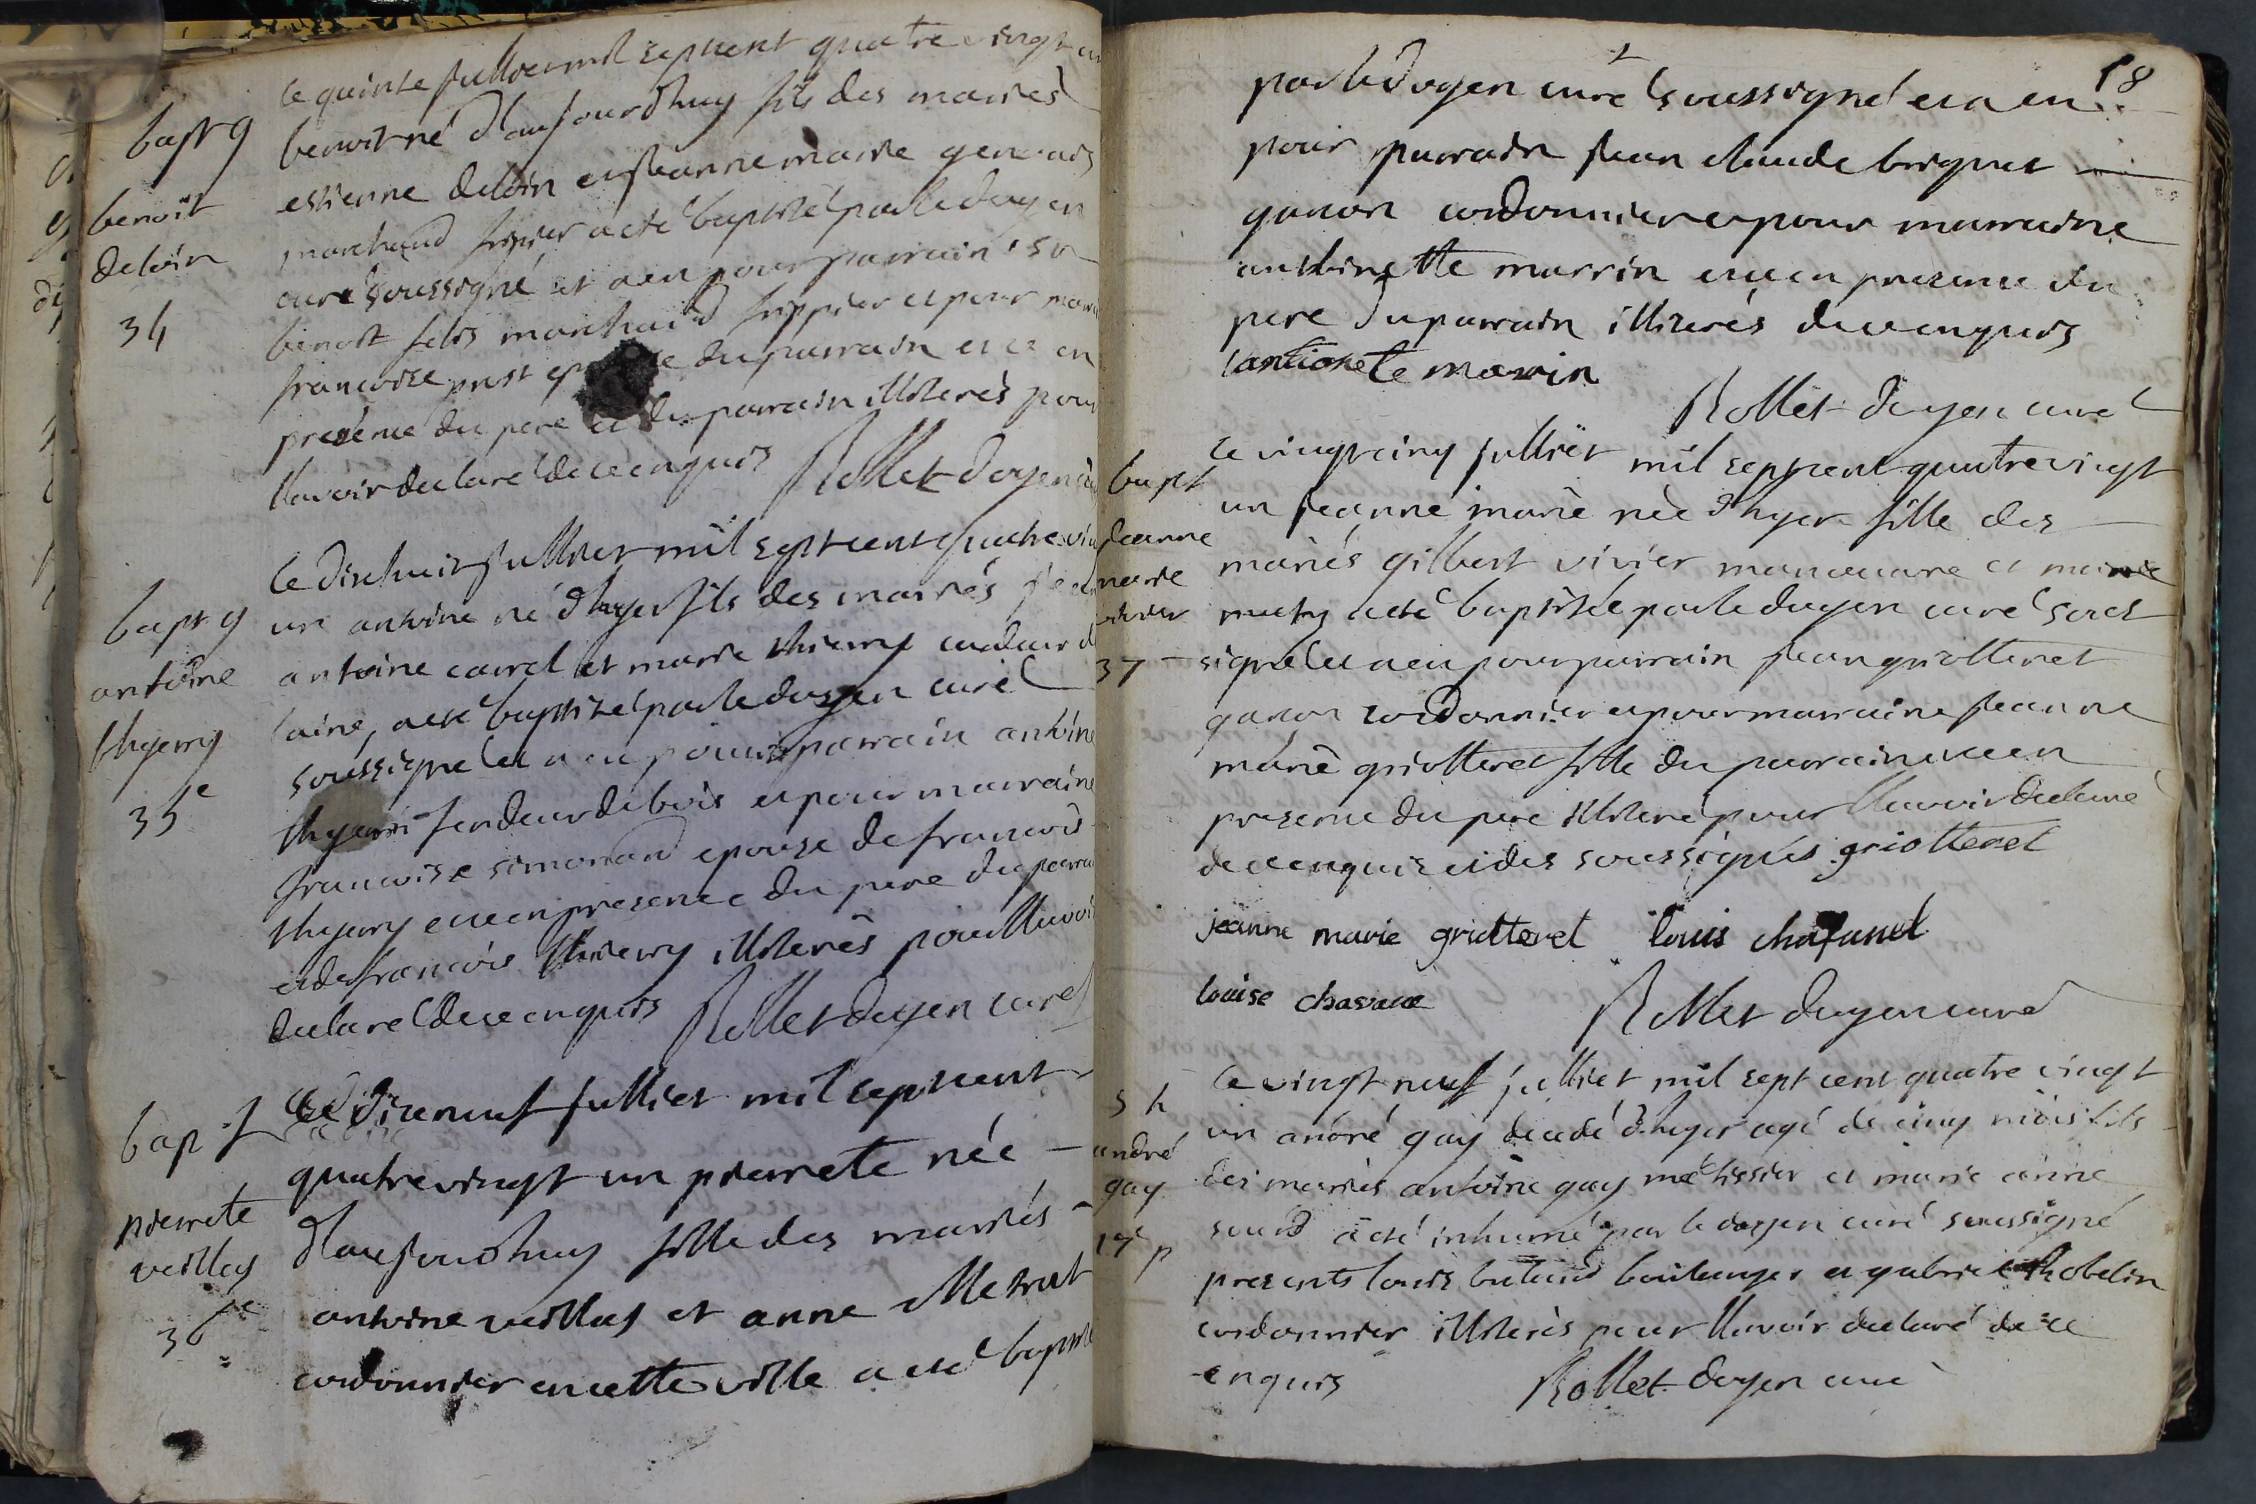 bapt g
benoit
deloin
34
le quinze jullier mil sept cent quatre vingt un
benoit né d'aujourdhuy fils des mariés
estienne deloin et jeanne marie gervais
marchand fripier a été baptisé par le doyen
curé soussigné et a eu pour parrain sr
benoit marchand frippier et pour
francoise du parrain et ce en
presence du pere et du parrain illiterés pour
l'avoir declaré de ce enquis Rollet doyen
bapt g
antoine
thyerry
35e
le dixhuit julliet mil sept cent quatre
un antoine né d'hyer fils des mariés
antoine carrel et marie thierry cardeur de
laine, a été baptizé par le doyen curé
soussigné et a eu pour parrain antoine
thyerri fendeur de bois et pour marraine
francoise simonand epouze de francois
thyerry et ce en presence du pere du
et de francois thierry illiterés pour l'avoir
declaré de ce enquis Rollet doyen curé
bap f
pierrete
veillas
36e
Le dixneuf julliet mil sept cent
quatre vingt un pierrete née
d'aujourdhuy fille des mariés
antoine veillas et anne
cordonnier en cette ville a été
18
par le doyen curé soussigné et a eu
pour parrain jean claude
cordonnier et pour marraine
anthoinette marrin et ce en presence du
pere du parrain illiterés de ce enquis
lantionete marin
Rollet doyen curé
bapt
jeanne
marie
vivier
37
le vingt cinq julliet mil sept cent quatre vingt
un jeanne marie née d'hyer fille des
mariés gilbert vivier manoeuvre et marie
a été baptisée par le doyen curé sous
signé et a eu pour parrain jean griotteret
cordonnier et pour marraine jeanne
marie griotteret fille du parrain et ce en
presence du pere illiteré pour l'avoir declaré
de ce enquis et des soussignés griotteret
jeanne marie griotteret louis
louise
Rollet doyen curé
s h
andré
gay
17 p
le vingt neuf julliet mil sept cent quatre vingt
un andré gay decedé d'hyer agé de cinq mois fils
des mariés antoine gay et marie anne
a été inhumé par le doyen curé soussigné
presents louis boulanger et gabriel Robelin
cordonnier illiterés pour l'avoir declaré de ce
enquis Rollet doyen curé